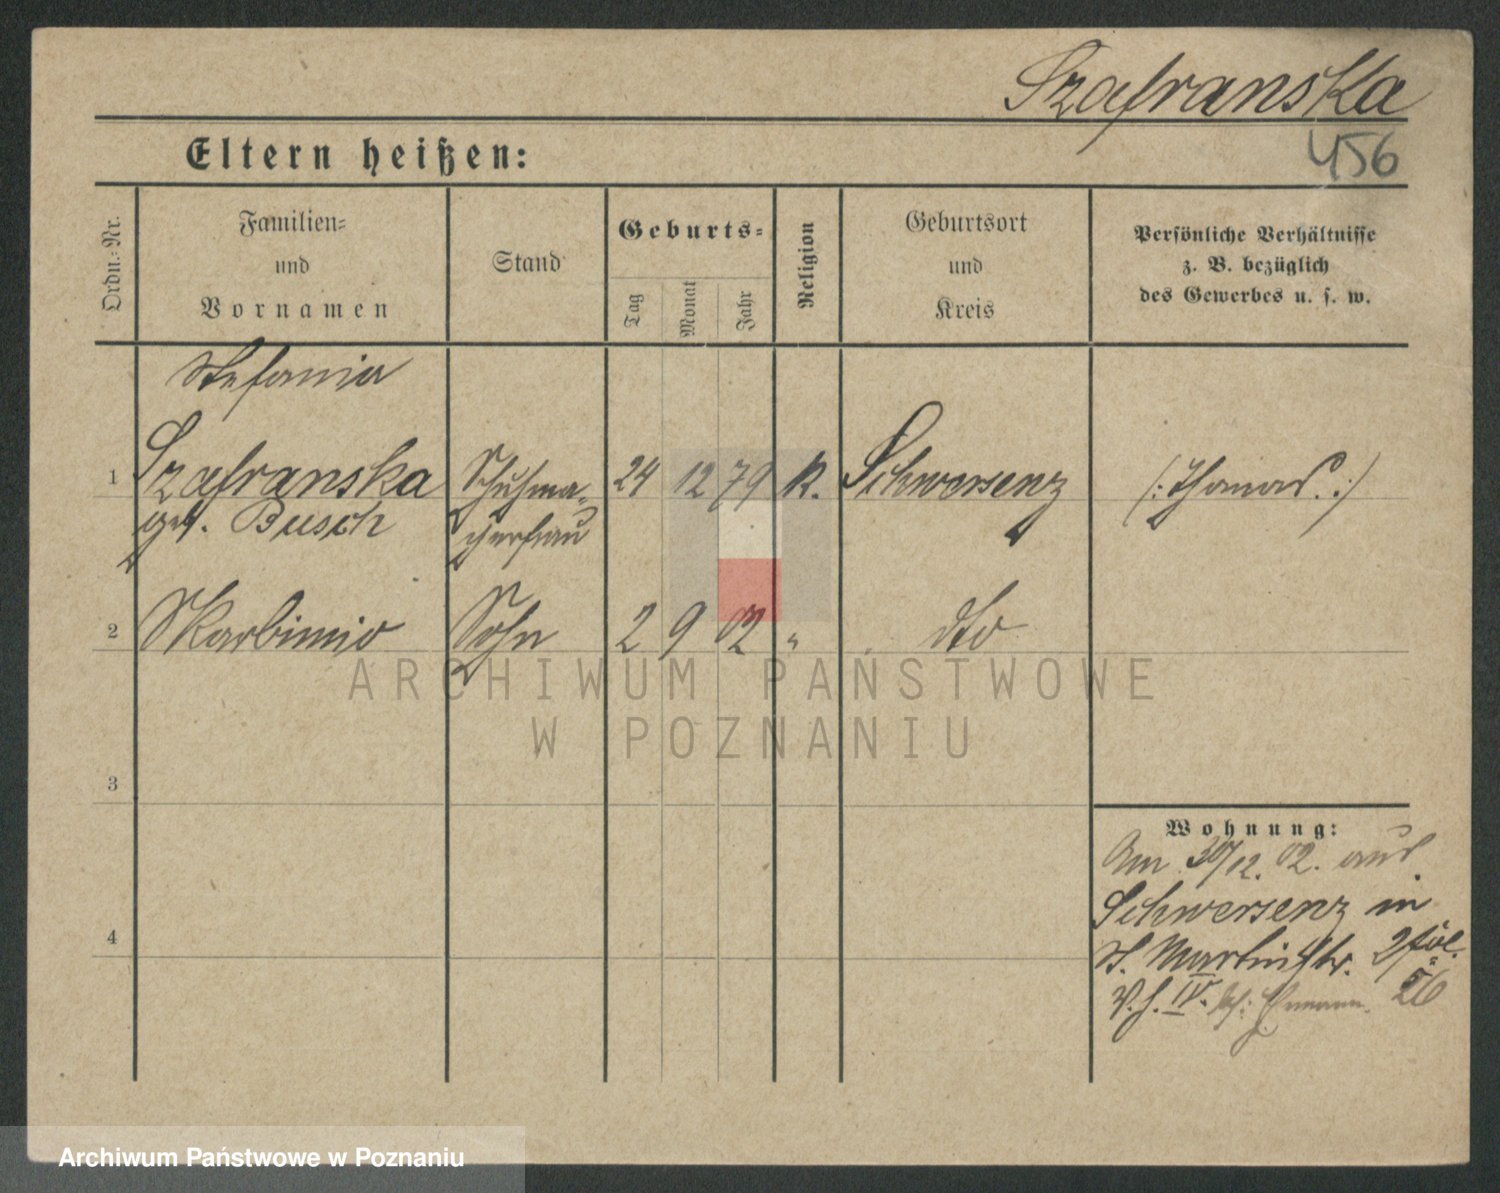 Szafranska
456
Eltern heißen:
Ordn.-Nr.
Familien-
und
Vornamen
Stand
Geburts-
Tag
Monat
Jahr
Religion
Geburtsort
und
Kreis
Persönliche Verhältnisse
z. B. bezüglich
des Gewerbes u. s. w.
Stefania
1 Szafranska Schuhma- 24 12 79 K. Schwersenz (: Thomas. :)
geb. Busch cherfrau
2 Skarbimir Sohn 2 9 02 " dto
ARCHIWUM PAŃSTWOWE
W POZNANIU
3
Wohnung:
Am 30/12. 02. aus
Schwersenz in
4
St. Martinstr.
V. H. IV. 26
Archiwum Państwowe w Poznaniu